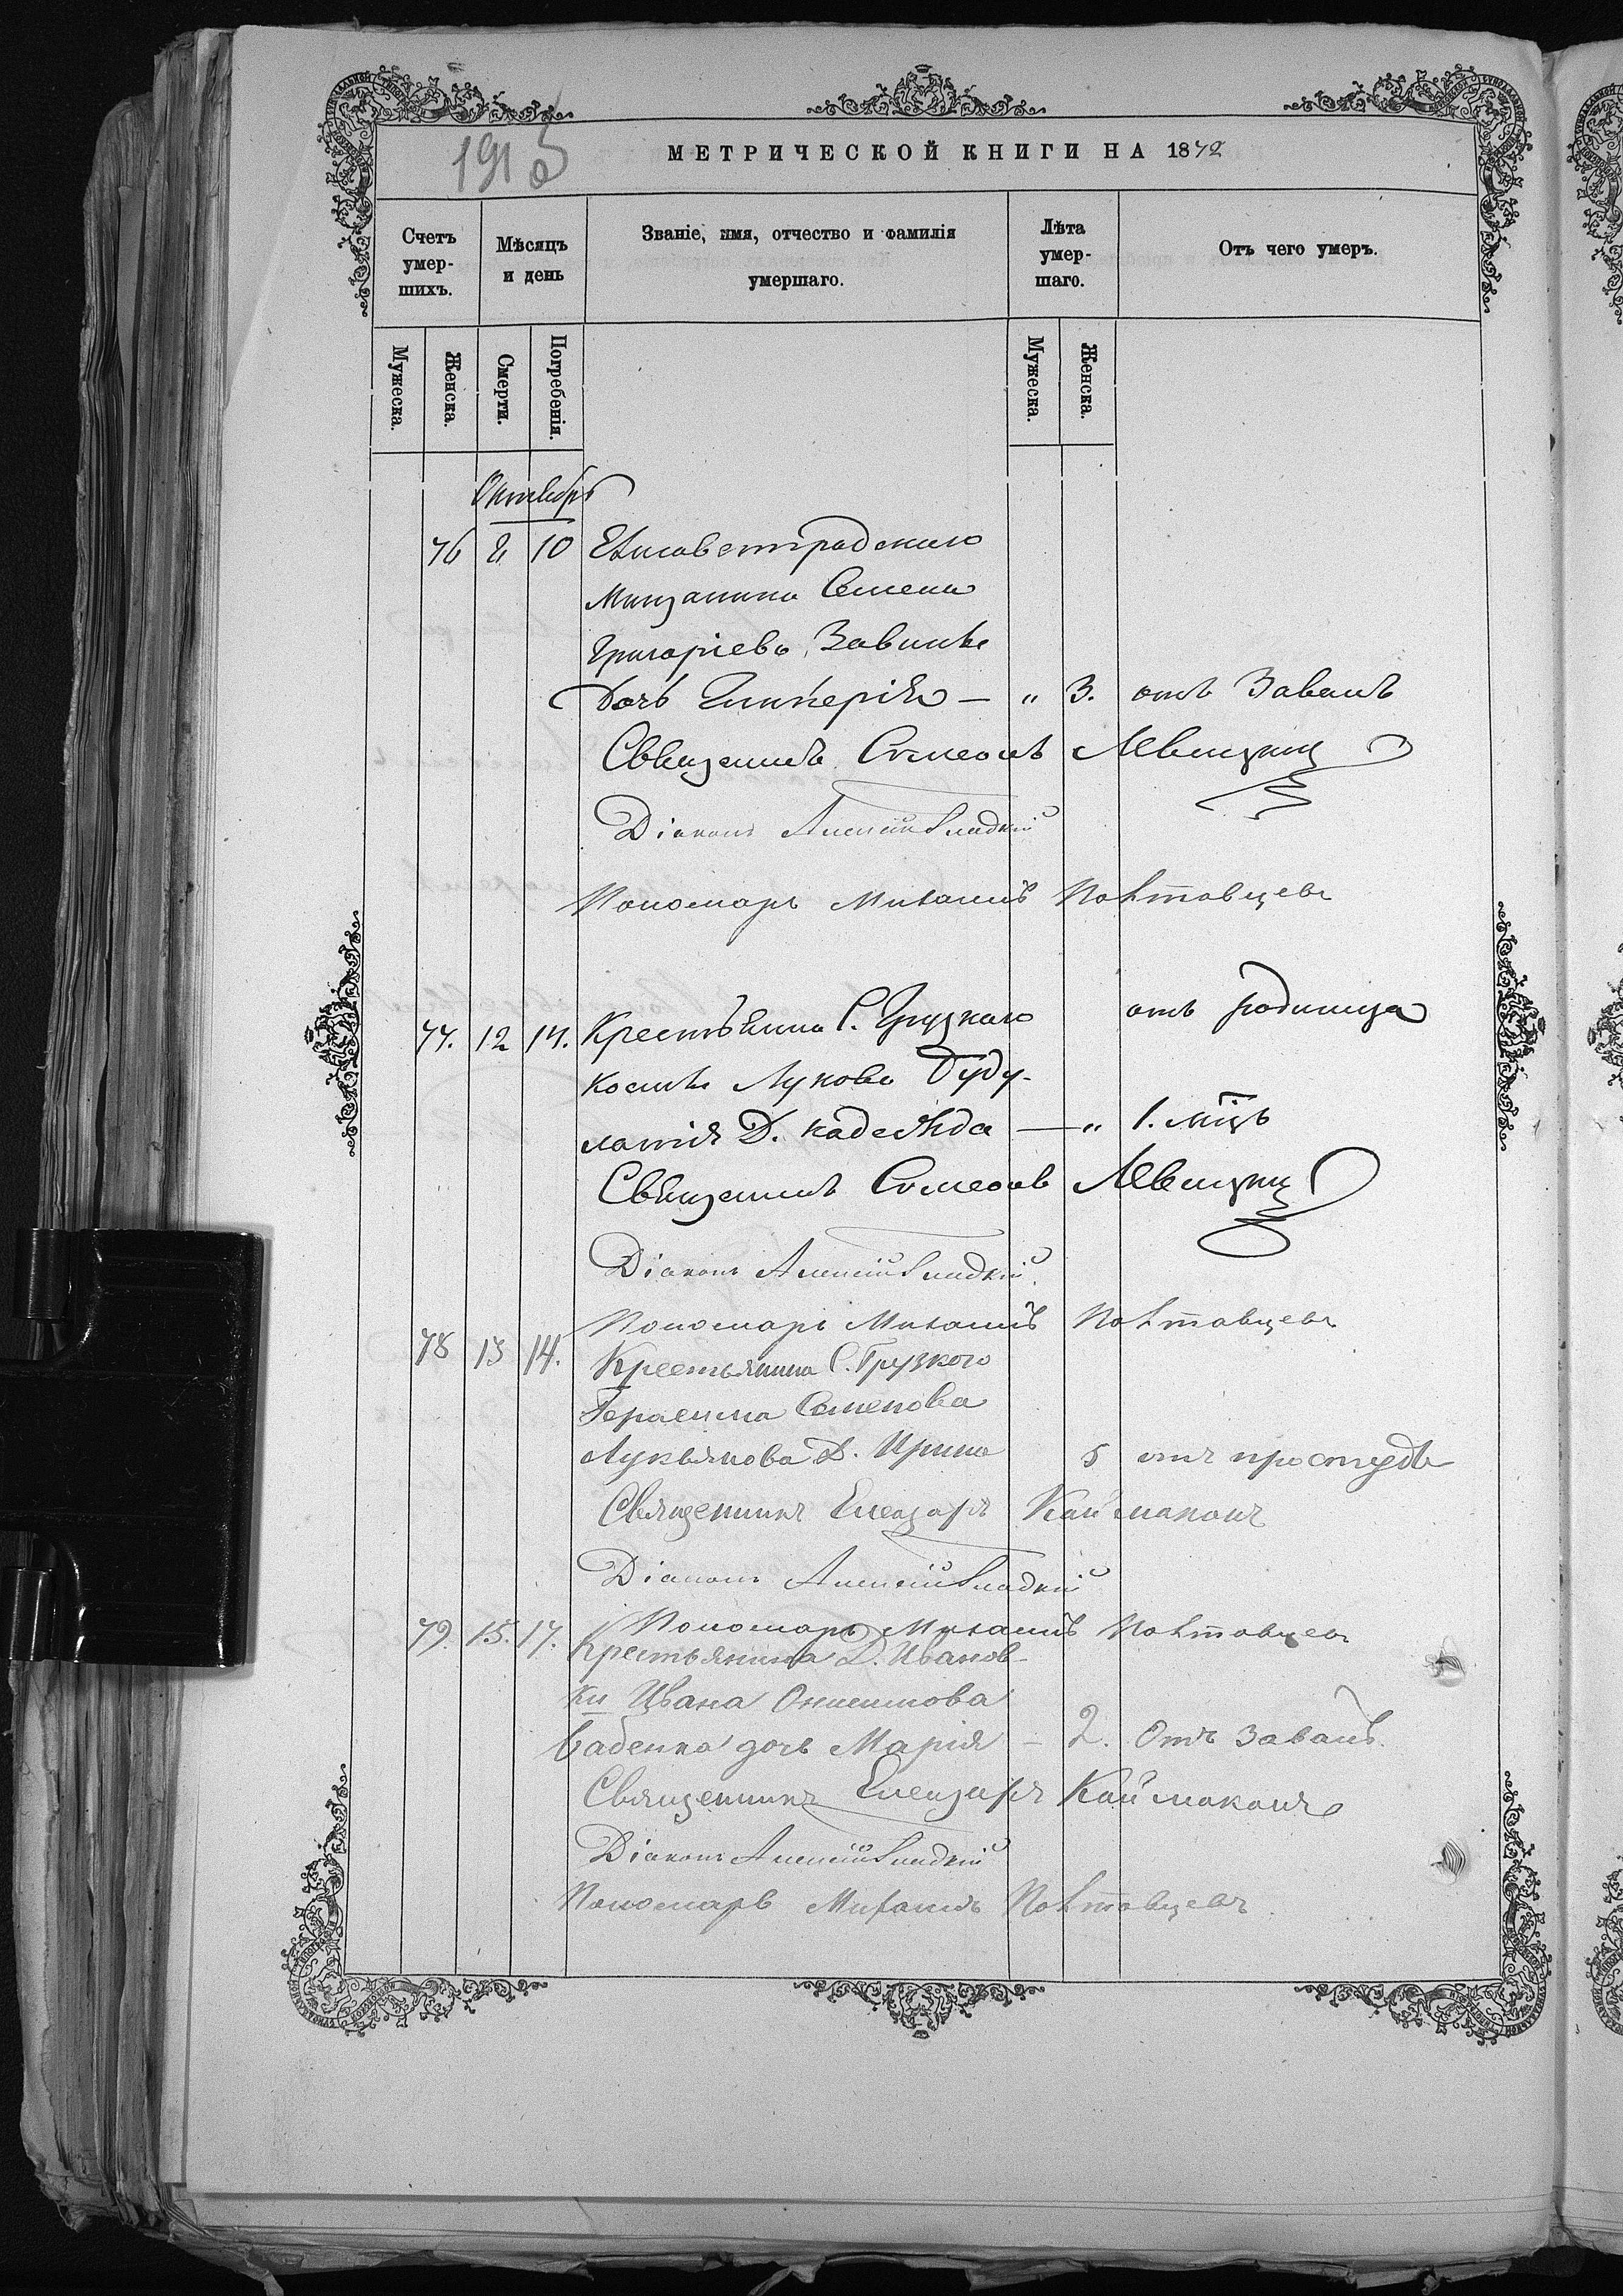 МЕТРИЧЕСКОЙ КНИГИ НА 1872
Счетъ умершихъ.
Мѣсяцъ и день
Званіе, имя, отчество и фамилія умершаго.
Лѣта умершаго.
Отъ чего умеръ.
Мужеска.
Женска.
Смерти.
Погребенія.
Мужеска.
Женска.
Октябрь
76 8 10 Елисаветградскаго
Мищанина Семена
Григоріева
Дочь Гликерія — „ 3. отъ Завалъ
Священикъ Сѵмеонъ Левицкій
Діаконъ Алексій Гладкій
Пономарь Михаилъ Полтавцевъ
77. 12 14. Крестьянина С. Грузкаго отъ родимца
Космы Лукова Буду-
латія Д. Надежда — „ 1. мцъ
Священикъ Сѵмеонъ Левицкій
Діаконъ Алексій Гладкій
Пономарь Михаилъ Полтавцевъ
78 13 14. Крестьянина С. Грузкого
Герасима Семенова
Лукьянова Д. Ирина 5 отъ простуды
Священникъ Елеазаръ Каймаканъ
Діаконъ Алексій Гладкій
Пономарь Михаилъ Полтавцевъ
79. 15. 17. Крестьянина Д. Иванов-
ки Ивана
Бабенка дочь Марія — 2. Отъ завалъ.
Священникъ Елеазаръ Каймаканъ
Діаконъ Алексій Гладкій
Пономарь Михаилъ Полтавцевъ